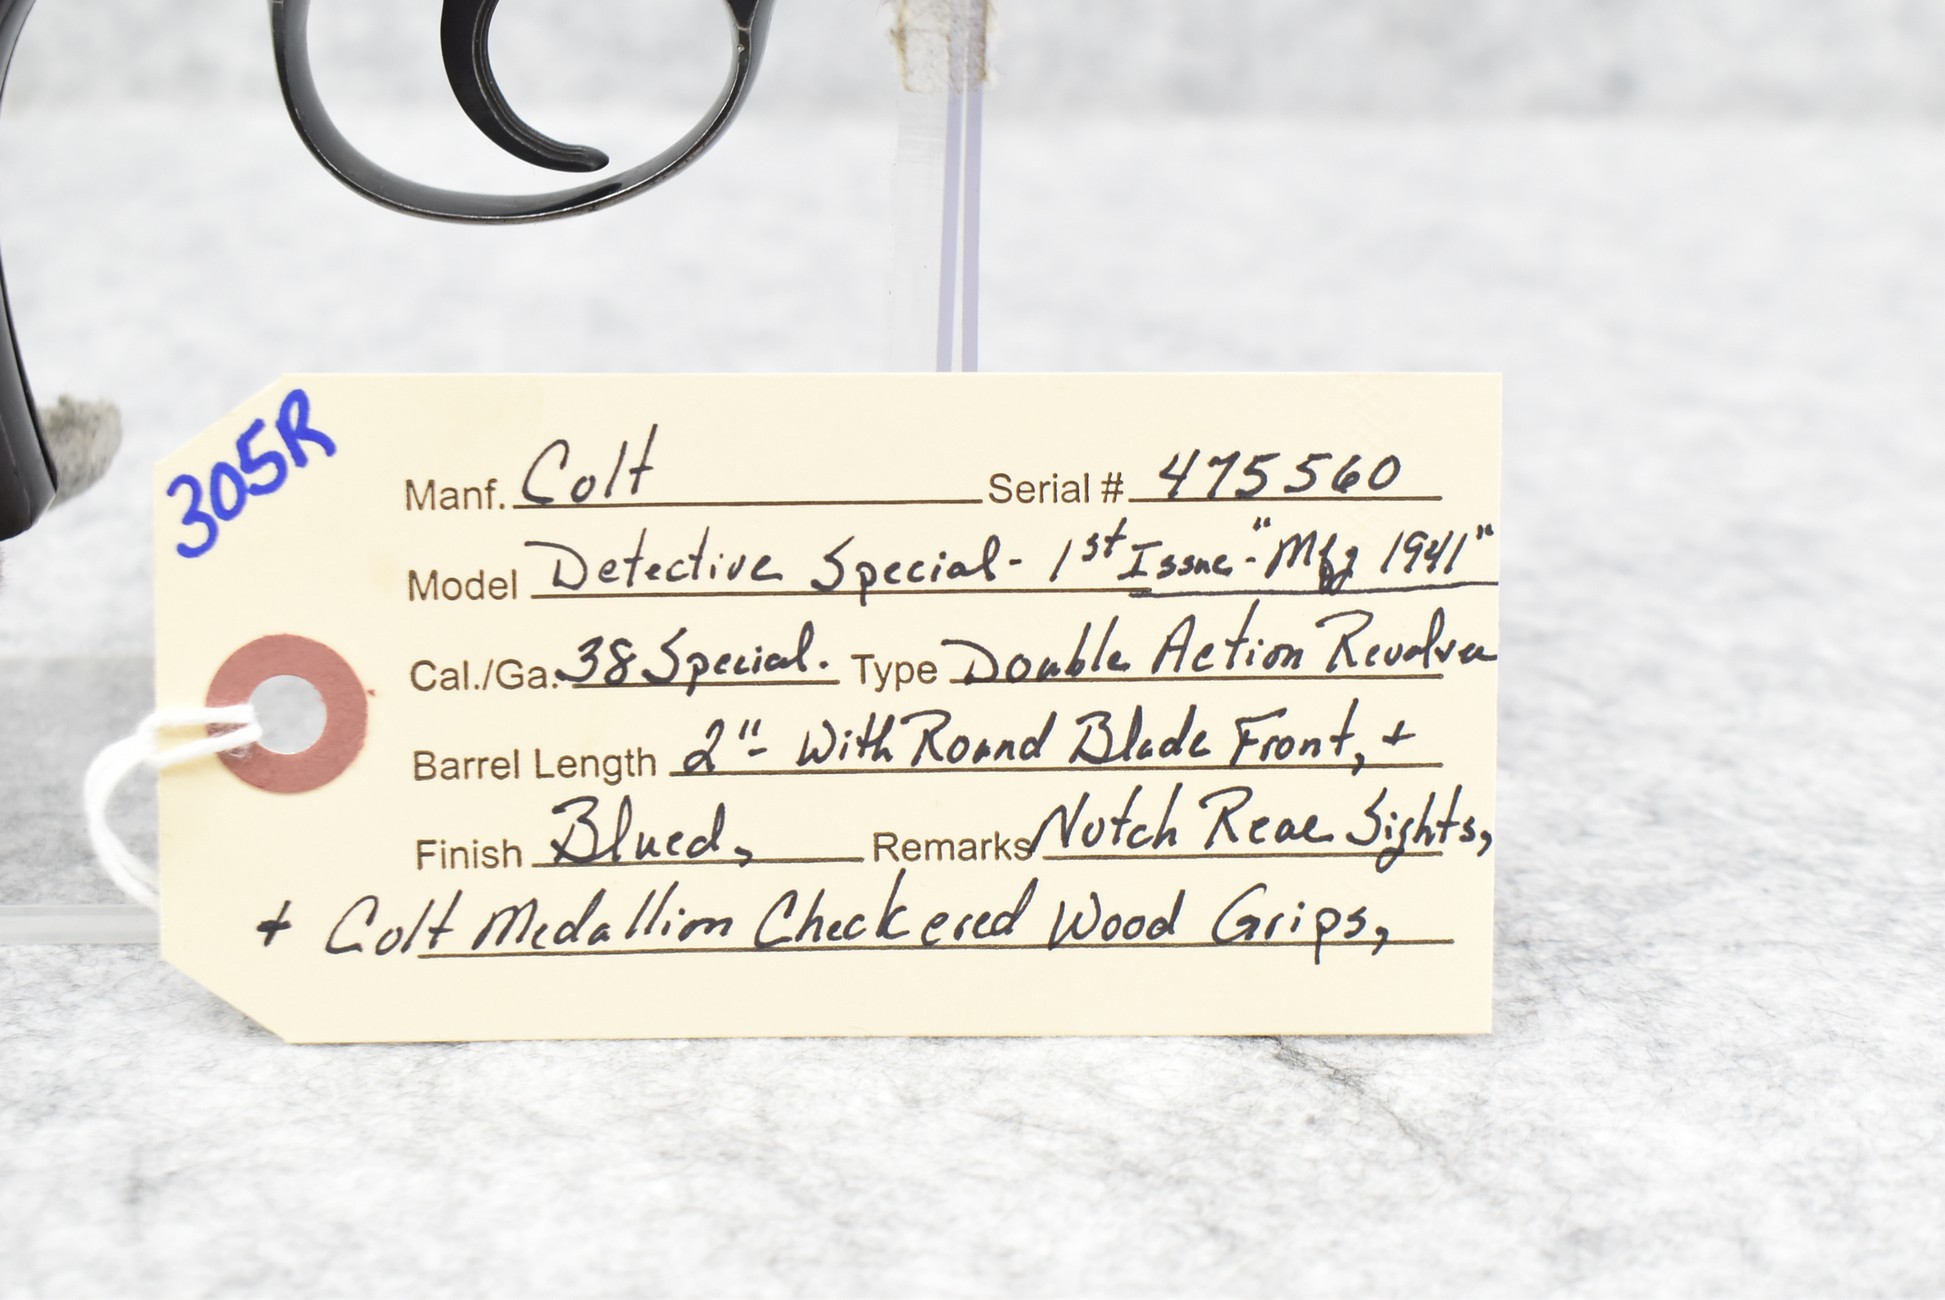 305R
Manf. Colt Serial # 475560
Model Detective Special - 1st Issue - "Mfg 1941"
Cal./Ga. 38 Special. Type Double Action Revolver
Barrel Length 2" - With Round Blade Front, +
Finish Blued, Remarks Notch Rear Sights,
+ Colt Medallion Checkered Wood Grips,